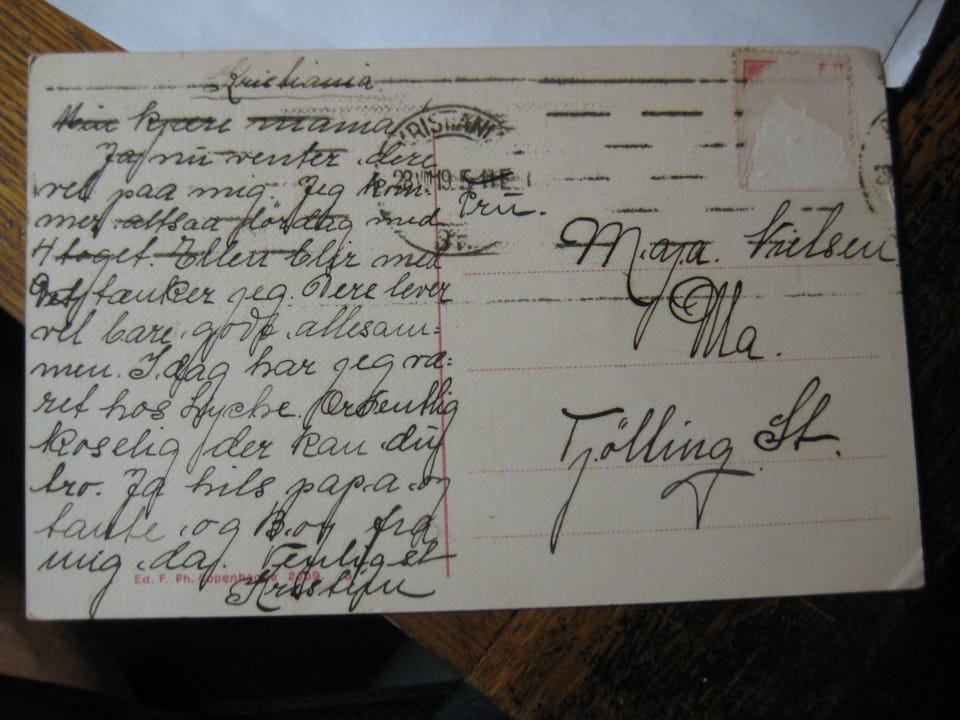 Kristiania
Min kjære mama
Ja nu venter dere
vel paa mig. Jeg kom-
mer altsaa lördag med
4 toget. Ellen blir med
tænker jeg. Dere lever
vel bare godt allesam-
men. I dag har jeg væ-
ret hos Lyche. Ordentlig
koselig der kan du
tro. Ja hils papa og
tante og B. og fra
mig da. Venligst
Kristian
KRISTIANIA
28 VIII 19
Fru.
Maja Nielsen
Ma.
Tjölling St.
Ed. F. Ph. Copenhague 2009